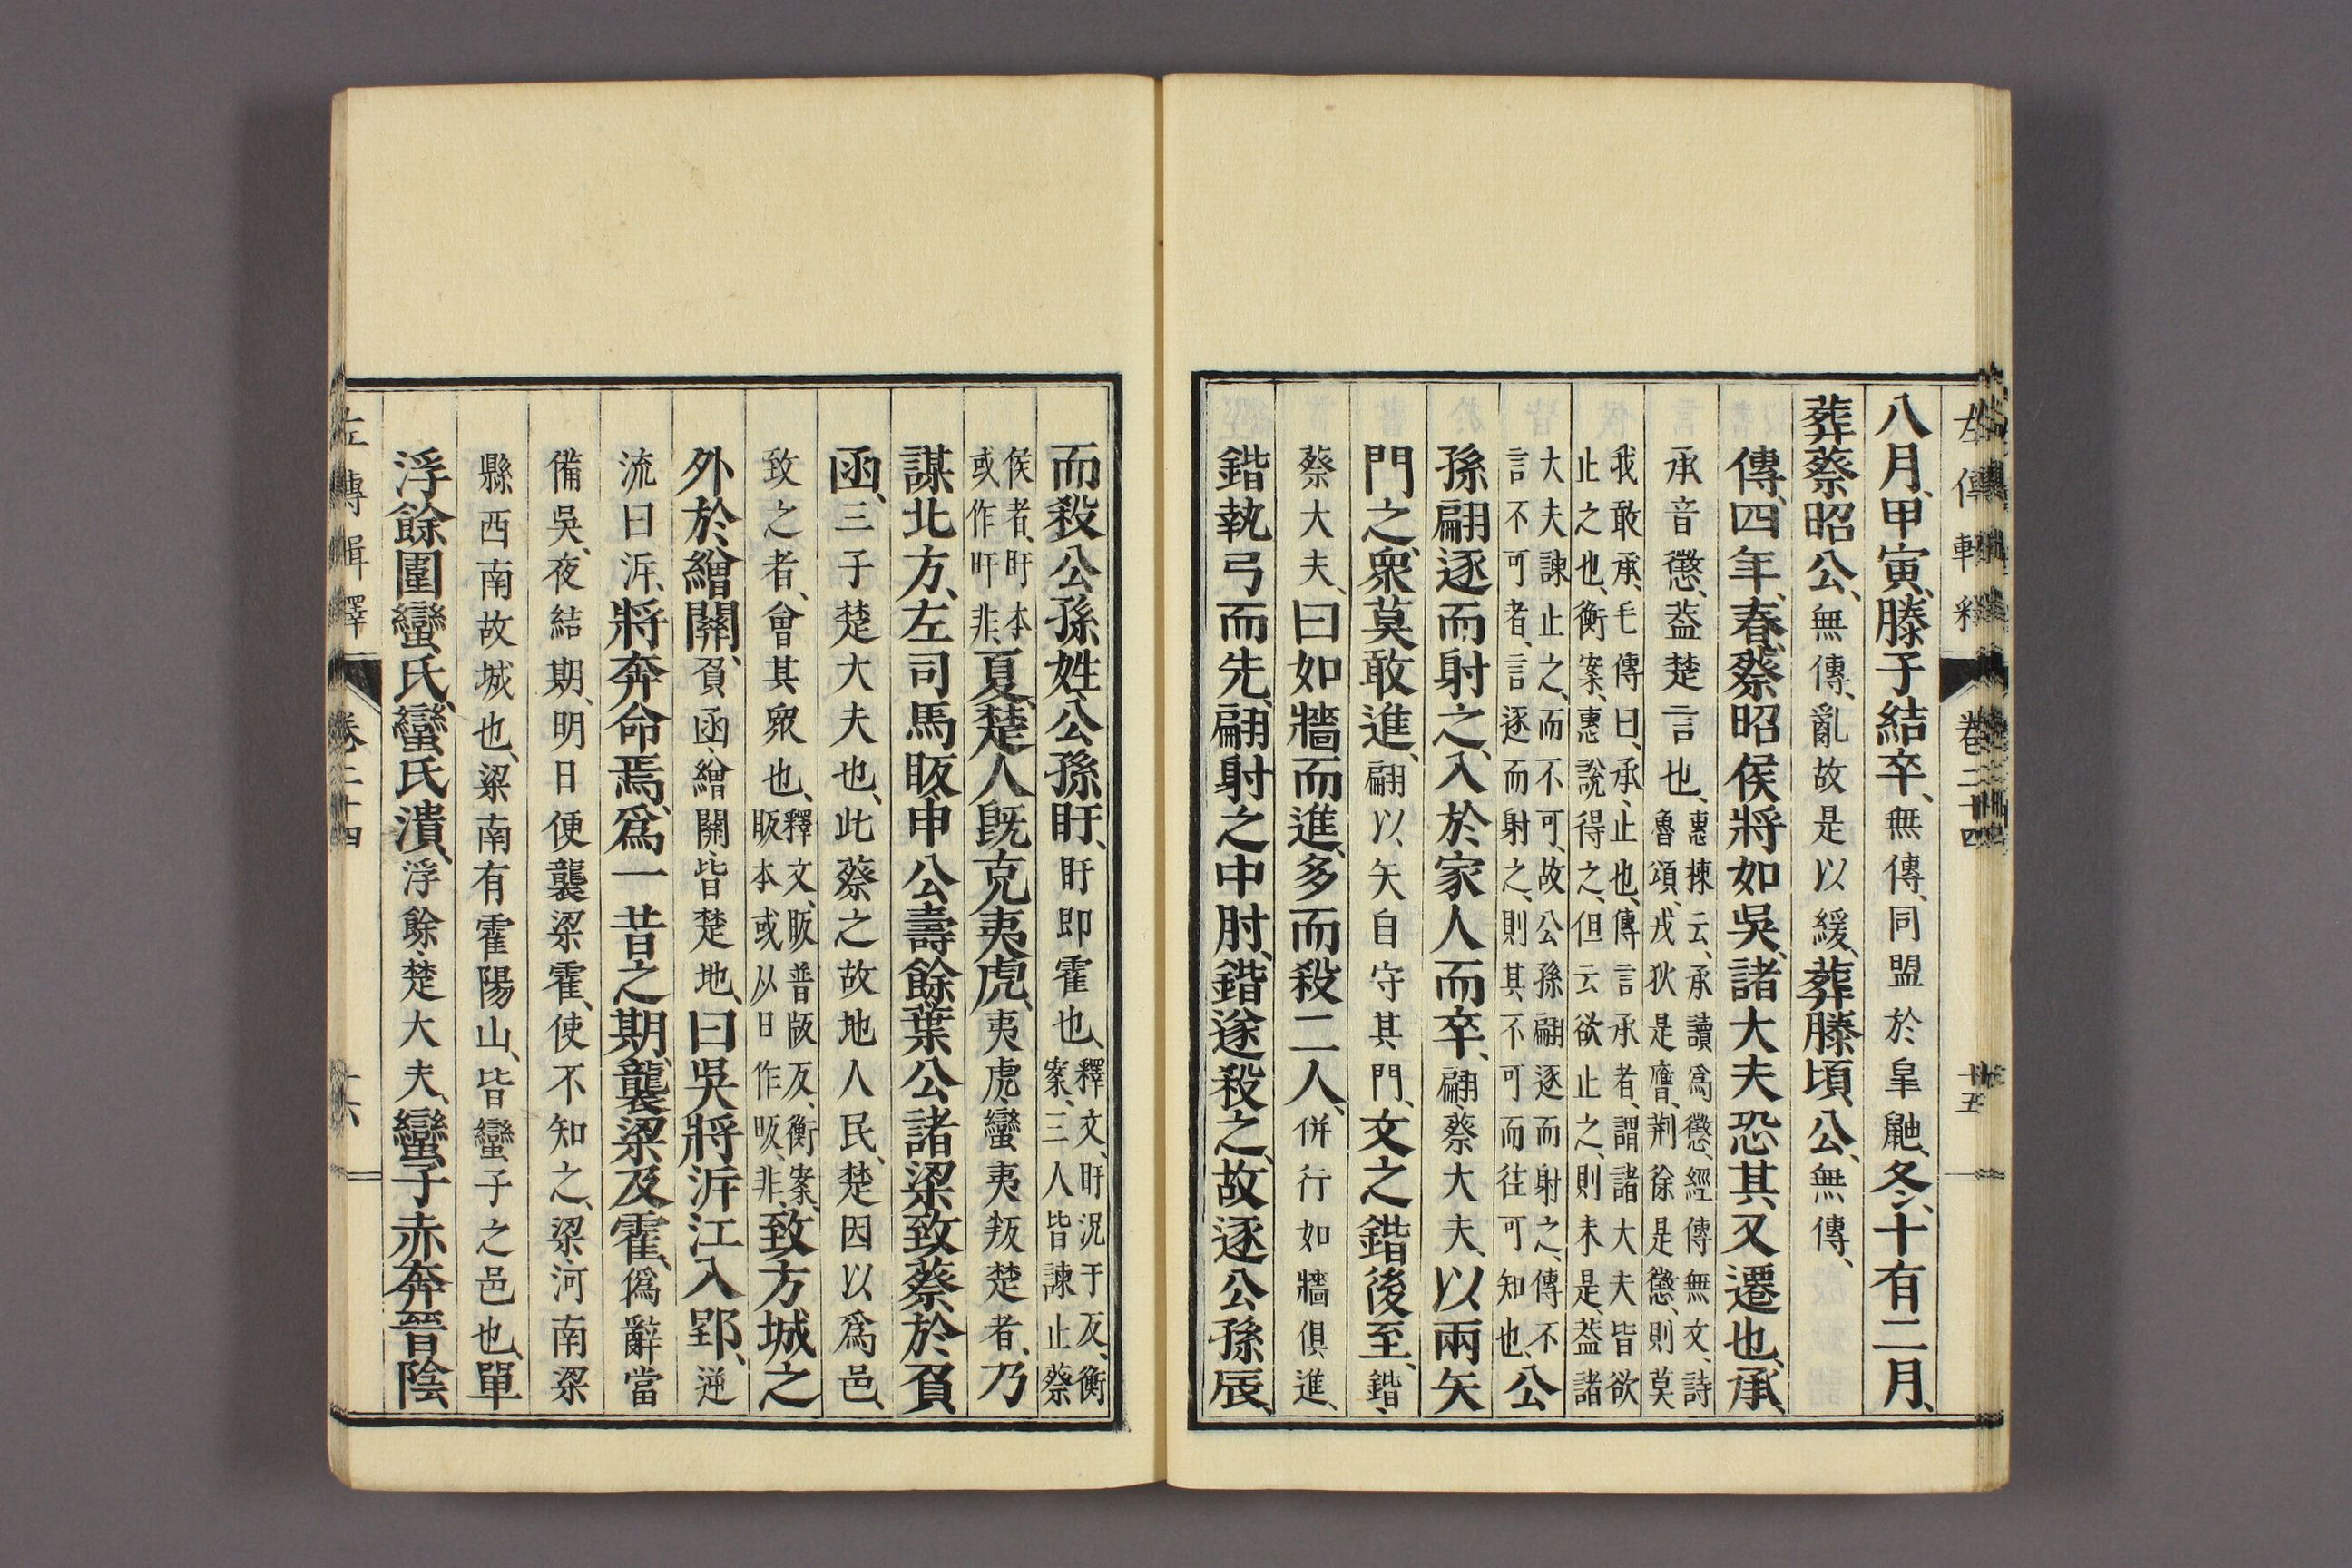 左傳輯釋 卷二十四 十五
八月、甲寅、滕子結卒、無傳、同盟於皐鼬、冬、十有二月、
葬蔡昭公、無傳、亂故是以緩、葬滕頃公、無傳、
傳、四年、春、蔡昭侯將如吳、諸大夫恐其又遷也、承、
承音懲、蓋楚言也、惠棟云、承讀爲懲、經傳無文、詩
魯頌、戎狄是膺、荆徐是懲、則莫
我敢承、毛傳曰、承、止也、傳言承者、謂諸大夫皆欲
止之也、衡案、惠說得之、但云欲止之、則未是、蓋諸
大夫諫止之、而不可、故公孫翩逐而射之、傳不
言不可者、言逐而射之、則其不可而往可知也、公
孫翩逐而射之、入於家人而卒、翩、蔡大夫、以兩矢
門之、衆莫敢進、翩以矢自守其門、文之鍇後至、鍇、
蔡大夫、曰如牆而進、多而殺二人、併行如牆俱進、
鍇執弓而先、翩射之中肘、鍇遂殺之、故逐公孫辰、
而殺公孫姓、公孫盱、盱即霍也、釋文、盱況于反、衡
案、三人皆諫止蔡
侯者、盱本
或作吁非、夏、楚人既克夷虎、夷虎、蠻夷叛楚者、乃
謀北方、左司馬眅、申公壽餘、葉公諸梁致蔡於負
函、三子楚大夫也、此蔡之故地人民、楚因以爲邑、
致之者、會其衆也、釋文、眅普版反、衡案、
眅本或从日作昄、非、致方城之
外於繒關、負函、繒關、皆楚地、曰吳將泝江入郢、逆
流曰泝、將奔命焉、爲一昔之期、襲梁及霍、僞辭當
備吳、夜結期、明日便襲梁霍、使不知之、梁、河南梁
縣西南故城也、梁南有霍陽山、皆蠻子之邑也、單
浮餘圍蠻氏、蠻氏潰、浮餘、楚大夫、蠻子赤奔晉陰
左傳輯釋 卷二十四 十六